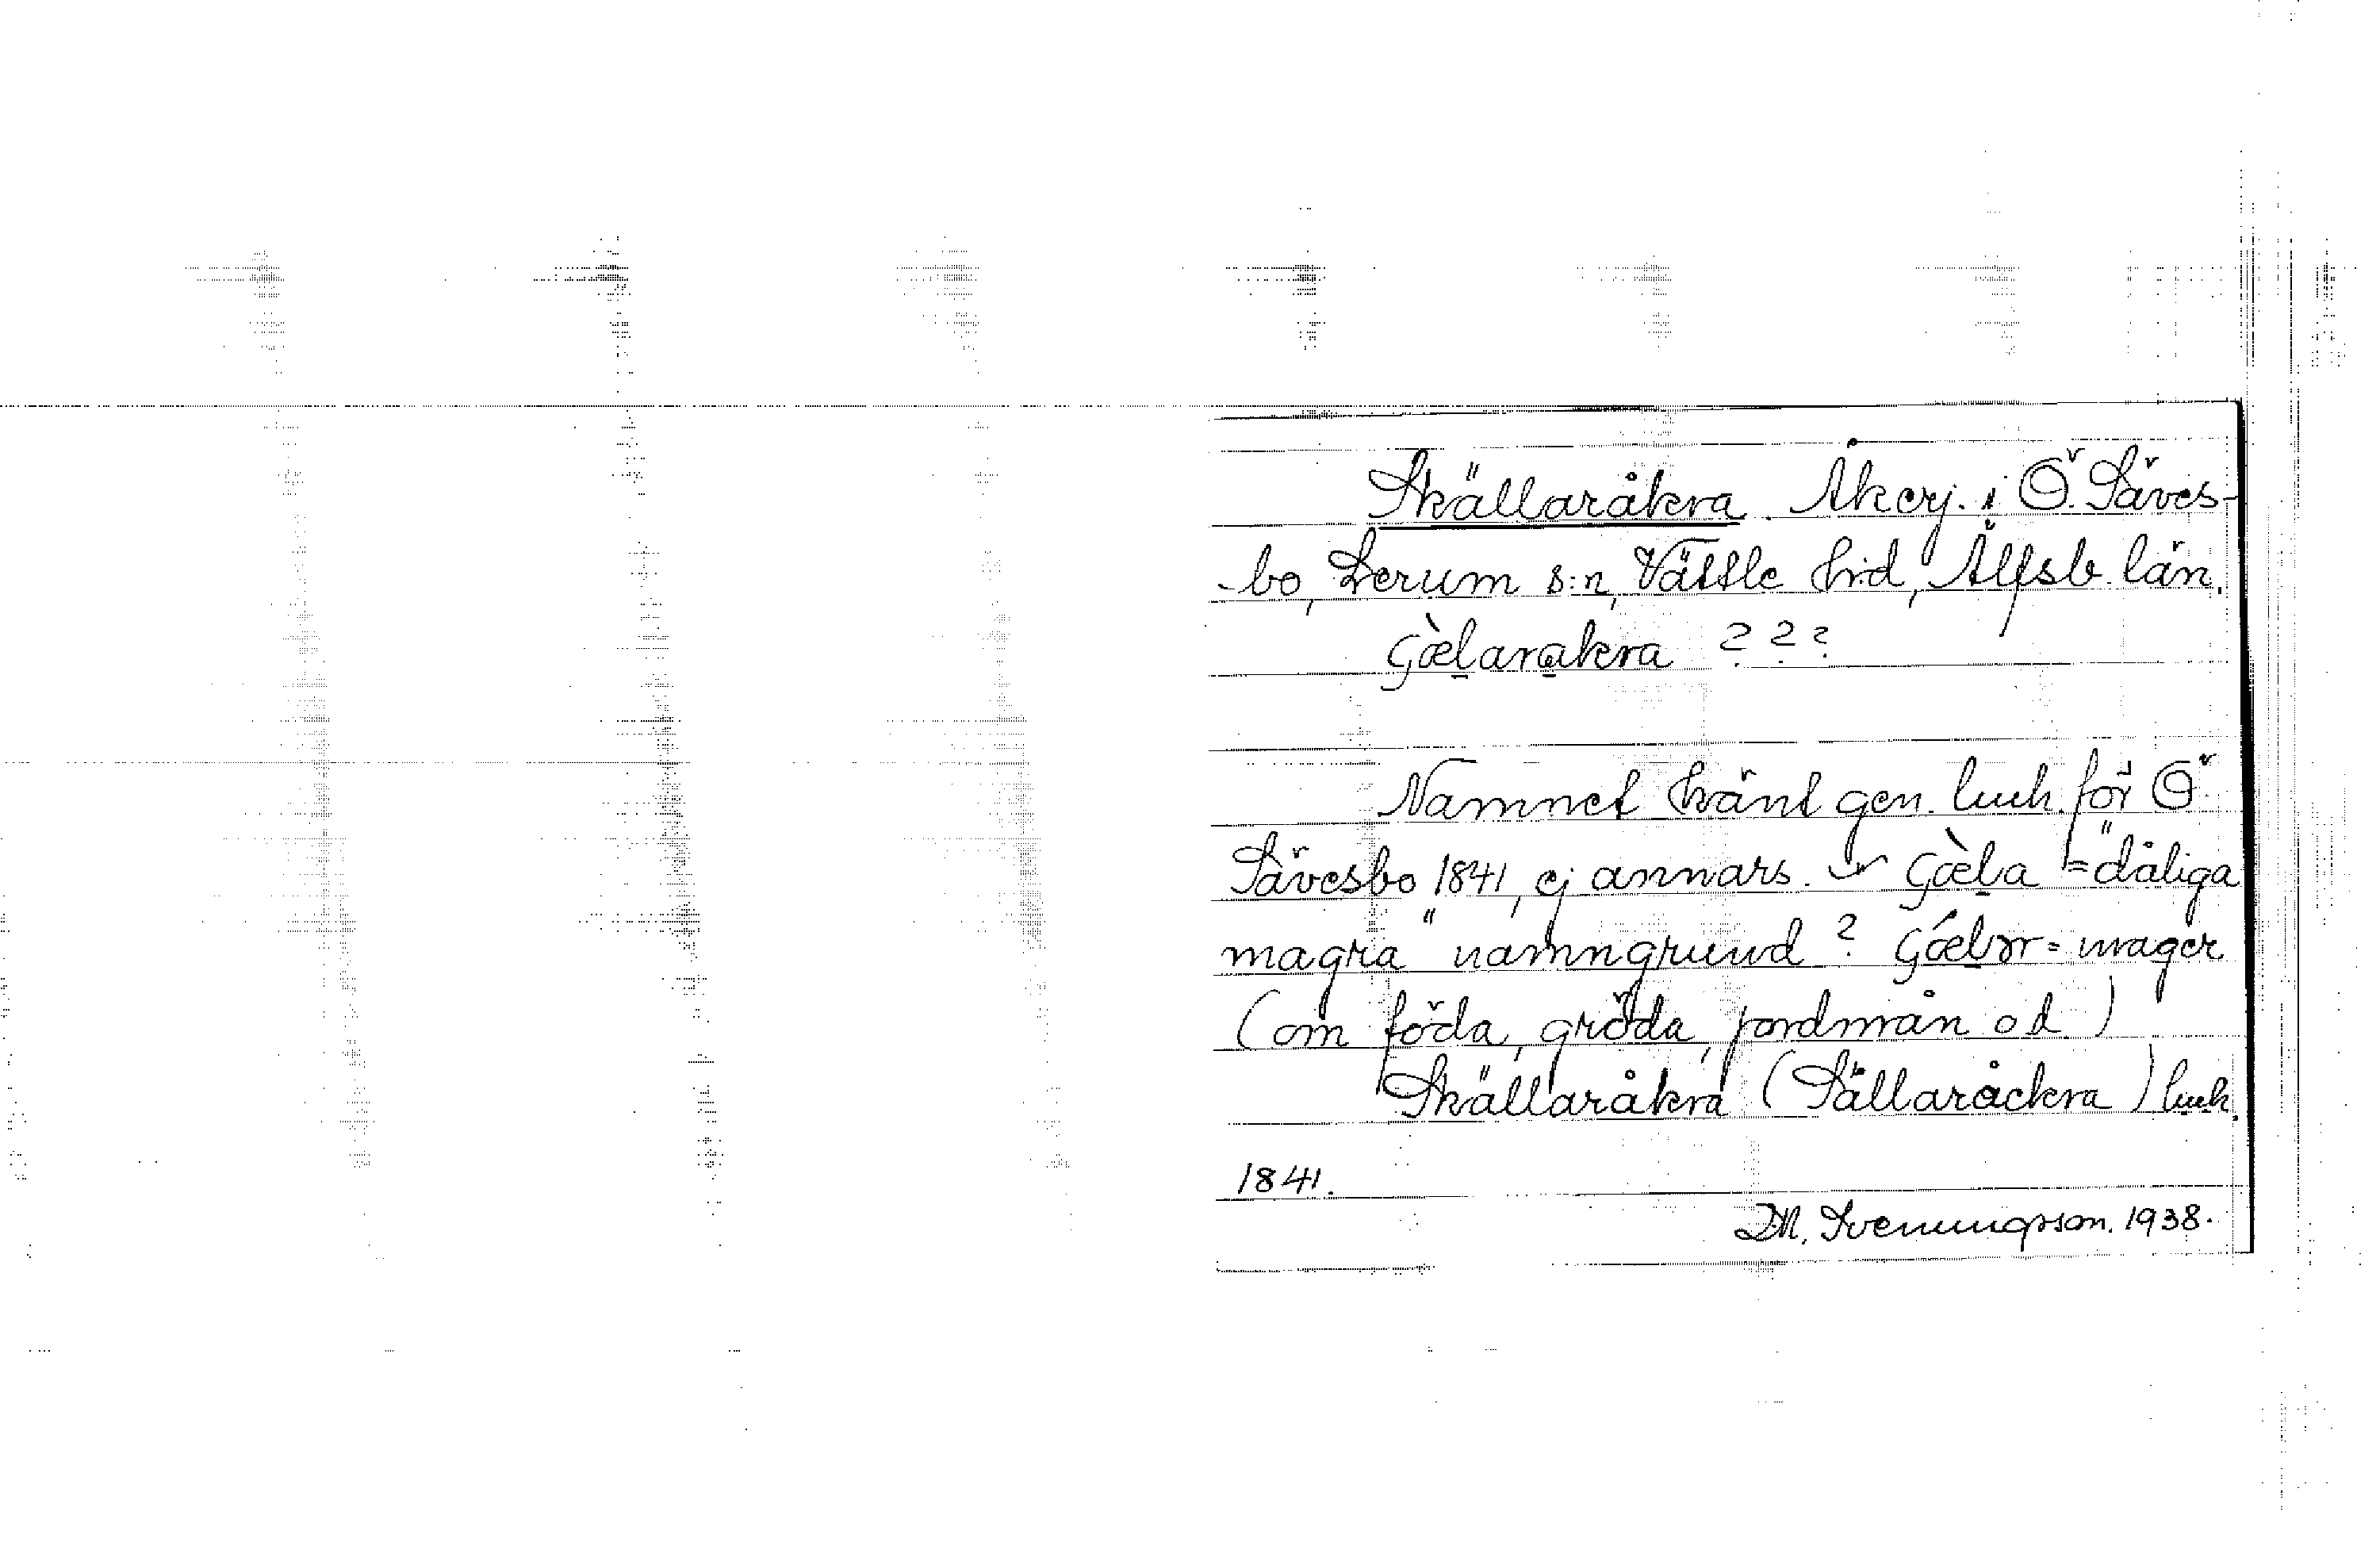 Skällaråkra. Åkerj. i Ö. Säves-
-bo, Lerum s:n, Vättle hd, Älfsb. län.
çæ̀larakra ? ? ?
Namnet känt gen. luch. för Ö
Sävesbo 1841, ej annars. çæ̀la = "dåliga
magra" namngrund? çǽlər = mager
(om föda, gröda, jordmån o d)
Skällaråkra (Sällaråckra) luch.
1841.
D.M. Svenungsson. 1938.